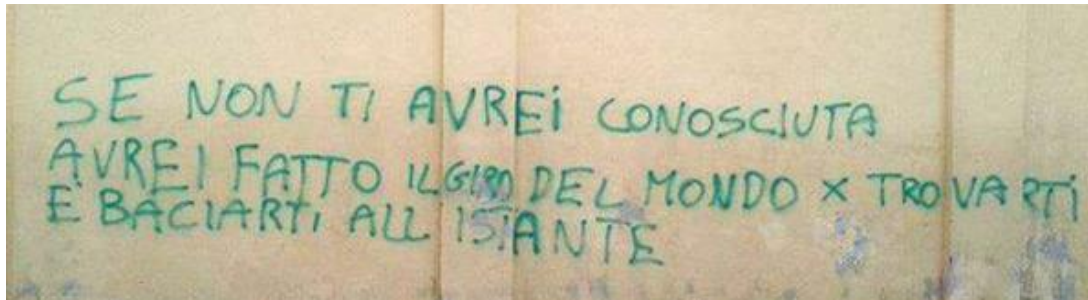 SE NON TI AVREI CONOSCIUTA
AVREI FATTO IL GIRO DEL MONDO X TROVARTI
E BACIARTI ALL ISTANTE